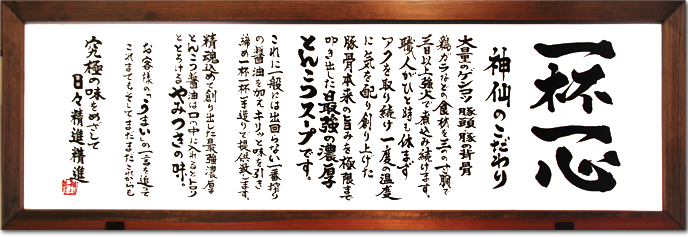 一杯一心
神仙のこだわり
大量のゲンコツ、豚頭、豚の背骨
鶏ガラなどの食材を三つの寸胴で
三日以上強火で煮込み続けます。
職人がひと時も休まず
アクを取り続け一度の温度
に気を配り創り上げた
豚骨本来の旨みを極限まで
叩き出した最強の濃厚
とんこつスープです。
これに一般には出回らない一番搾り
の醤油を加えキリッと味を引き
締め一杯一杯手造りで提供致します。
精魂込めて創り出した最強濃厚
とんこつ醤油は口の中に入れるととろり
ととろけるやみつきの味。
お客様の、「うまい」の一言を追って
これまでもそしてまだまだこれからも
究極の味をめざして
日々精進精進